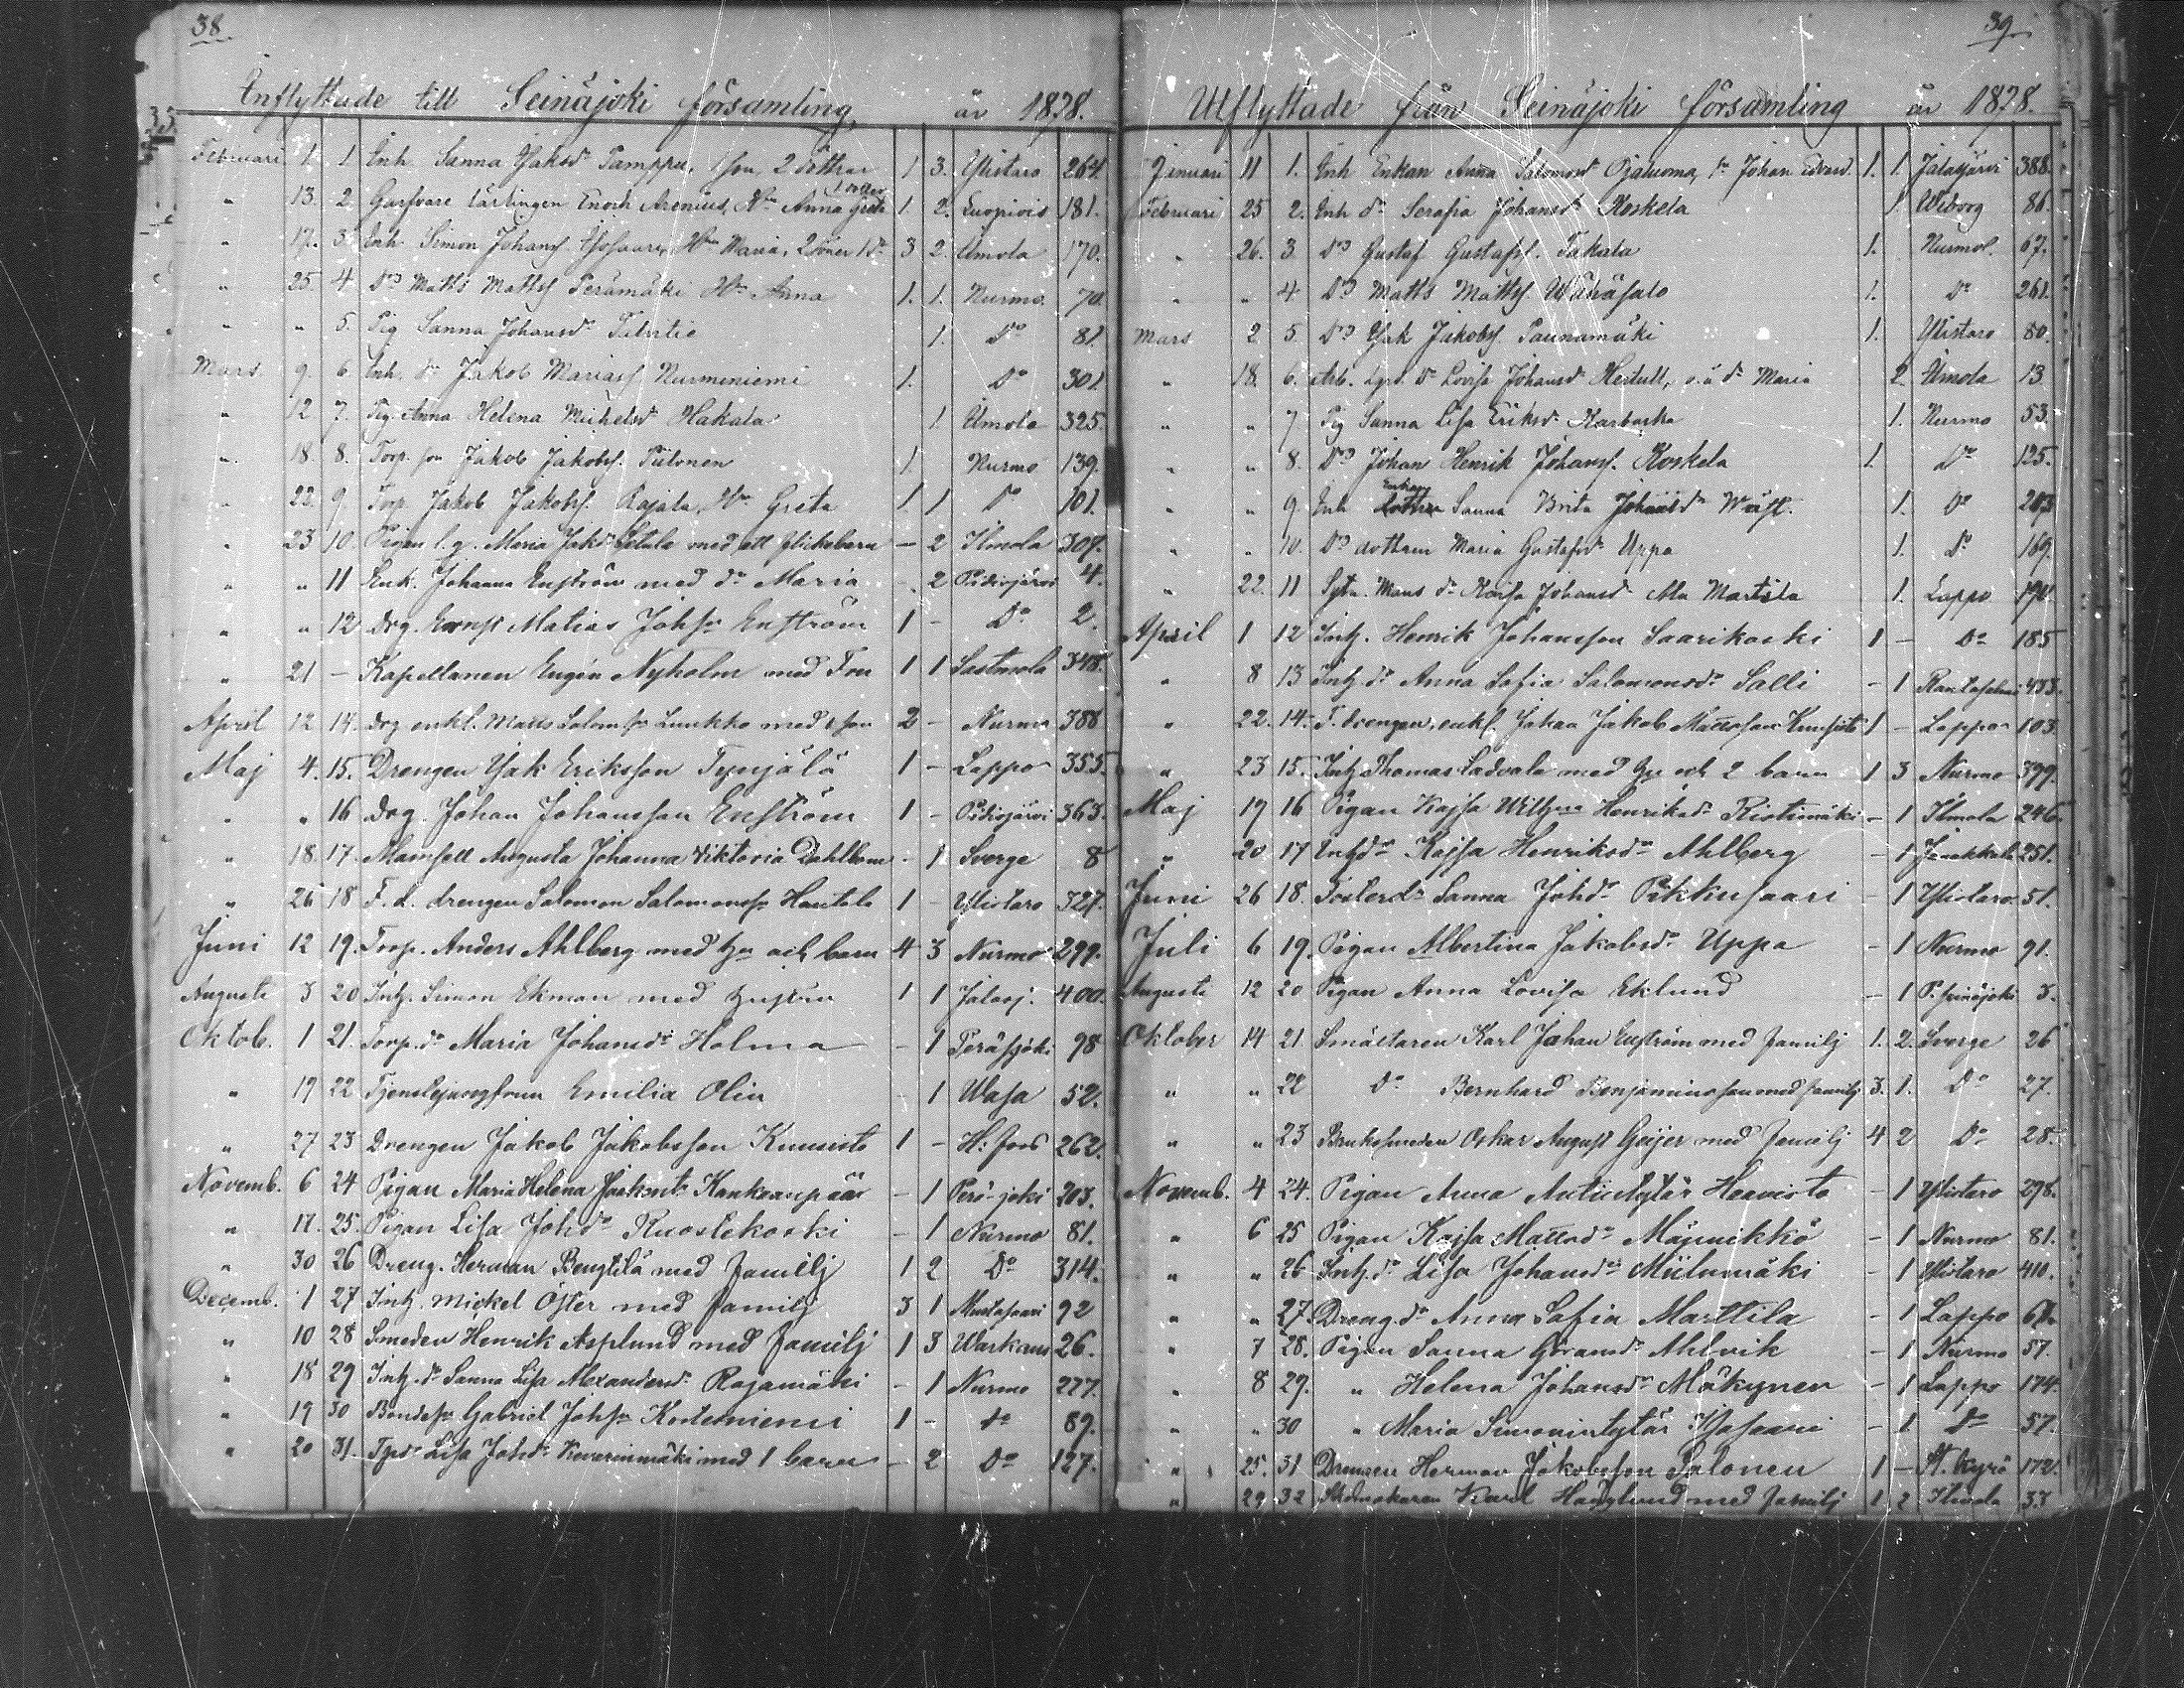 38.
Inflyttade till Seinäjoki församling, år 1878.
Februari 1. 1. Inh. Sanna Isaksdr Pamppu, 1 son, 2 döttrar 1 3. Ylistaro 264.
" 13. 2. Garfvare lärlingen Enoch Arenius, Hu Anna Greta 1 dotter 1. 2. Luopiois 181.
" 17. 3. Inh. Simon Johans. Isosaari, Hu Maria, 2 söner 1 dr 3 2. Ilmola 170.
" 25 4 Do Matts Mattss Perämäki Hu Anna 1. 1. Nurmo. 70.
" " 5. Pig Sanna Johansdr Talvitie 1. Do 81.
Mars 9. 6 Inh. dr Jakob Mariass Nurmeniemi 1. Do 301.
" 12 7. Pig. Anna Helena Michelsdr Hakala 1. Ilmola 325.
" 18. 8. Torp. son Jakob Jakobss. Putonen 1. Nurmo 139.
" 22. 9. Torp. Jakob Jakobss. Rajala, Hu Greta 1 1 Do 101.
" 23 10. Pigan l.q. Maria Isaksdr med ett flickebarn – 2 Ilmola 307.
" " 11 Enk. Johanna Enström med dr Maria . 2 Pihlajavesi 4.
" " 12 Drg. Ernst Matias Johss Enström 1 – Do 2.
" 21 – Kapellanen Eugén Nyholm med Fru 1 1 Sastmola 348.
April 12 14. Drg enkl. Matts Salomss Luukko med 1 son 2 – Nurmo 388
Maj 4. 15. Drengen Isak Eriksson Tynjälä 1 – Lappo 355.
" " 16 Drg. Johan Johansson Enström 1 – 363.
" 18. 17. Mamsell Augusta Johanna Viktoria Dahlbom – 1 Sverge 8
" 26 18 F. d. drengen Salomon Salomonss Hautala 1 – Ylistaro 327.
Juni 12 19. Torp. Anders Ahlberg med hu och barn 4 3 Nurmo 299.
Augusti 3 20 Inh. Simon Ekman med hustru 1 1 Jalasj. 400.
Oktob. 1 21. Torp. dr Maria Johansdr Holma – 1 Peräsjoki 98
" 19 22 Tjenstejungfrun Emilia Olin – 1 Wasa 52.
" 27 23 Drengen Jakob Jakobsson Kuusisto 1 – H:fors 262.
Novemb. 6 24 Pigan Maria Helena Kankaanpää – 1 Perä-joki 203.
" 17. 25. Pigan Lisa Johdr Ruostekoski – 1 Nurmo 81.
" 30 26 Dreng. Herman Bengtilä med familj 1 2 Do 314.
Decemb. 1 27 Inh. Mickel Öster med familj 3 1 Mustasaari 92
" 10 28 Smeden Henrik Asplund med familj 1 3 Warkaus 26.
" 18 29 Inh. dr Sanna Lisa Alexandersdr Rajamäki – 1 Nurmo 277.
" 19 30 Bondess Gabriel Johss Kortesniemi 1 – do 89.
" 20 31. Lisa Johsdr med 1 barn – 2 Do 127.
39.
Utflyttade från Seinäjoki församling år 1878.
Januari 11 1. Inh Enkan Anna Salomonsdr Ojaluoma, sn Johan Edvard. 1. 1. Jalasjärvi 388.
Februari 25 2. Inh dr Serafia Johansdr Koskela 1 Wiborg 86.
" 26. 3. Do Gustaf Gustafss. Takala 1. Nurmo. 67.
" " 4 Do Matts Mattss. Wäräsalo 1. Do 261.
Mars 2 5. Do Isak Jakobss. Paunamäki 1. Ylistaro 80.
" 18. 6. dr Lovisa Johansdr o. ä dr Maria 2. Ilmola 13.
" " 7 Pig Sanna Lisa Eriksdr 1. Nurmo 53.
" " 8. Do Johan Henrik Johanss. Koskela 1. Do 125.
" " 9 Inh Enkan Sanna Brita Johansdr 1. Do 203
" " 10. Do dottren Maria Gustafsdr Uppa 1. Do 169.
" 22. 11 Kajsa Johansdr Ala Martila 1. Lappo 190.
April 1 12 Inh. Henrik Johansson Saarikoski 1 – Do 185
" 8 13 Inh. dr Anna Sofia Salomonsdr Salli – 1 Rautalampi 433.
" 22. 14. F. drengen, enkl. Johan Jakob Mattsson Kuusisto 1 – Lappo 103.
" 23 15. Inh Thomas Ladvala med hu och 2 barn 1 3 Nurmo 399.
Maj 19 16 Pigan Kajsa Wilhma Henriksdr Ristimäki – 1 Ilmola 246.
" 20 17 Inh. dr Kajsa Henriksdr Ahlberg – 1 Janakkala 251.
Juni 26 18. Fosterdr Sanna Johdr Pikkusaari – 1 Ylistaro. 51.
Juli 6 19. Pigan Albertina Jakobsdr Uppa – 1 Nurmo 91.
Augusti 12 20 Pigan Anna Lovisa Eklund – 1 P. seinäjoki 3.
Oktober 14 21. Smältaren Karl Johan Enström med familj 1. 2. Sverge 26
" " 22 Do Bernhard Benjaminsson med familj 3. 1. Do 27.
" " 23 Bruksmeden Oskar August Geijer med familj 4 2 Do 28.
Novemb. 4 24. Pigan Anna Antintytär Haavisto – 1 Ylistaro 298.
" 6 25 Pigan Kajsa Mattsdr Männikkö – 1 Nurmo 81.
" " 26 Inh. dr Lisa Johansdr Miilumäki – 1 Ylistaro 410.
" " 27. Dreng. dr Anna Sofia Marttila – 1 Lappo
" 7 28. Pigan Sanna Göransdr Ahlvik – 1 Nurmo 57.
" 8 29. " Helena Johansdr Mäkynen – 1 Lappo 174.
" " 30 " Maria Simonintytär Isosaari – 1 Do 57.
" 25. 31 Drengen Herman Jakobsson Palonen 1 – St. Kyrö 172.
" 29 32 Skomakaren Karl Haglund med familj 1 2 Ilmola 33